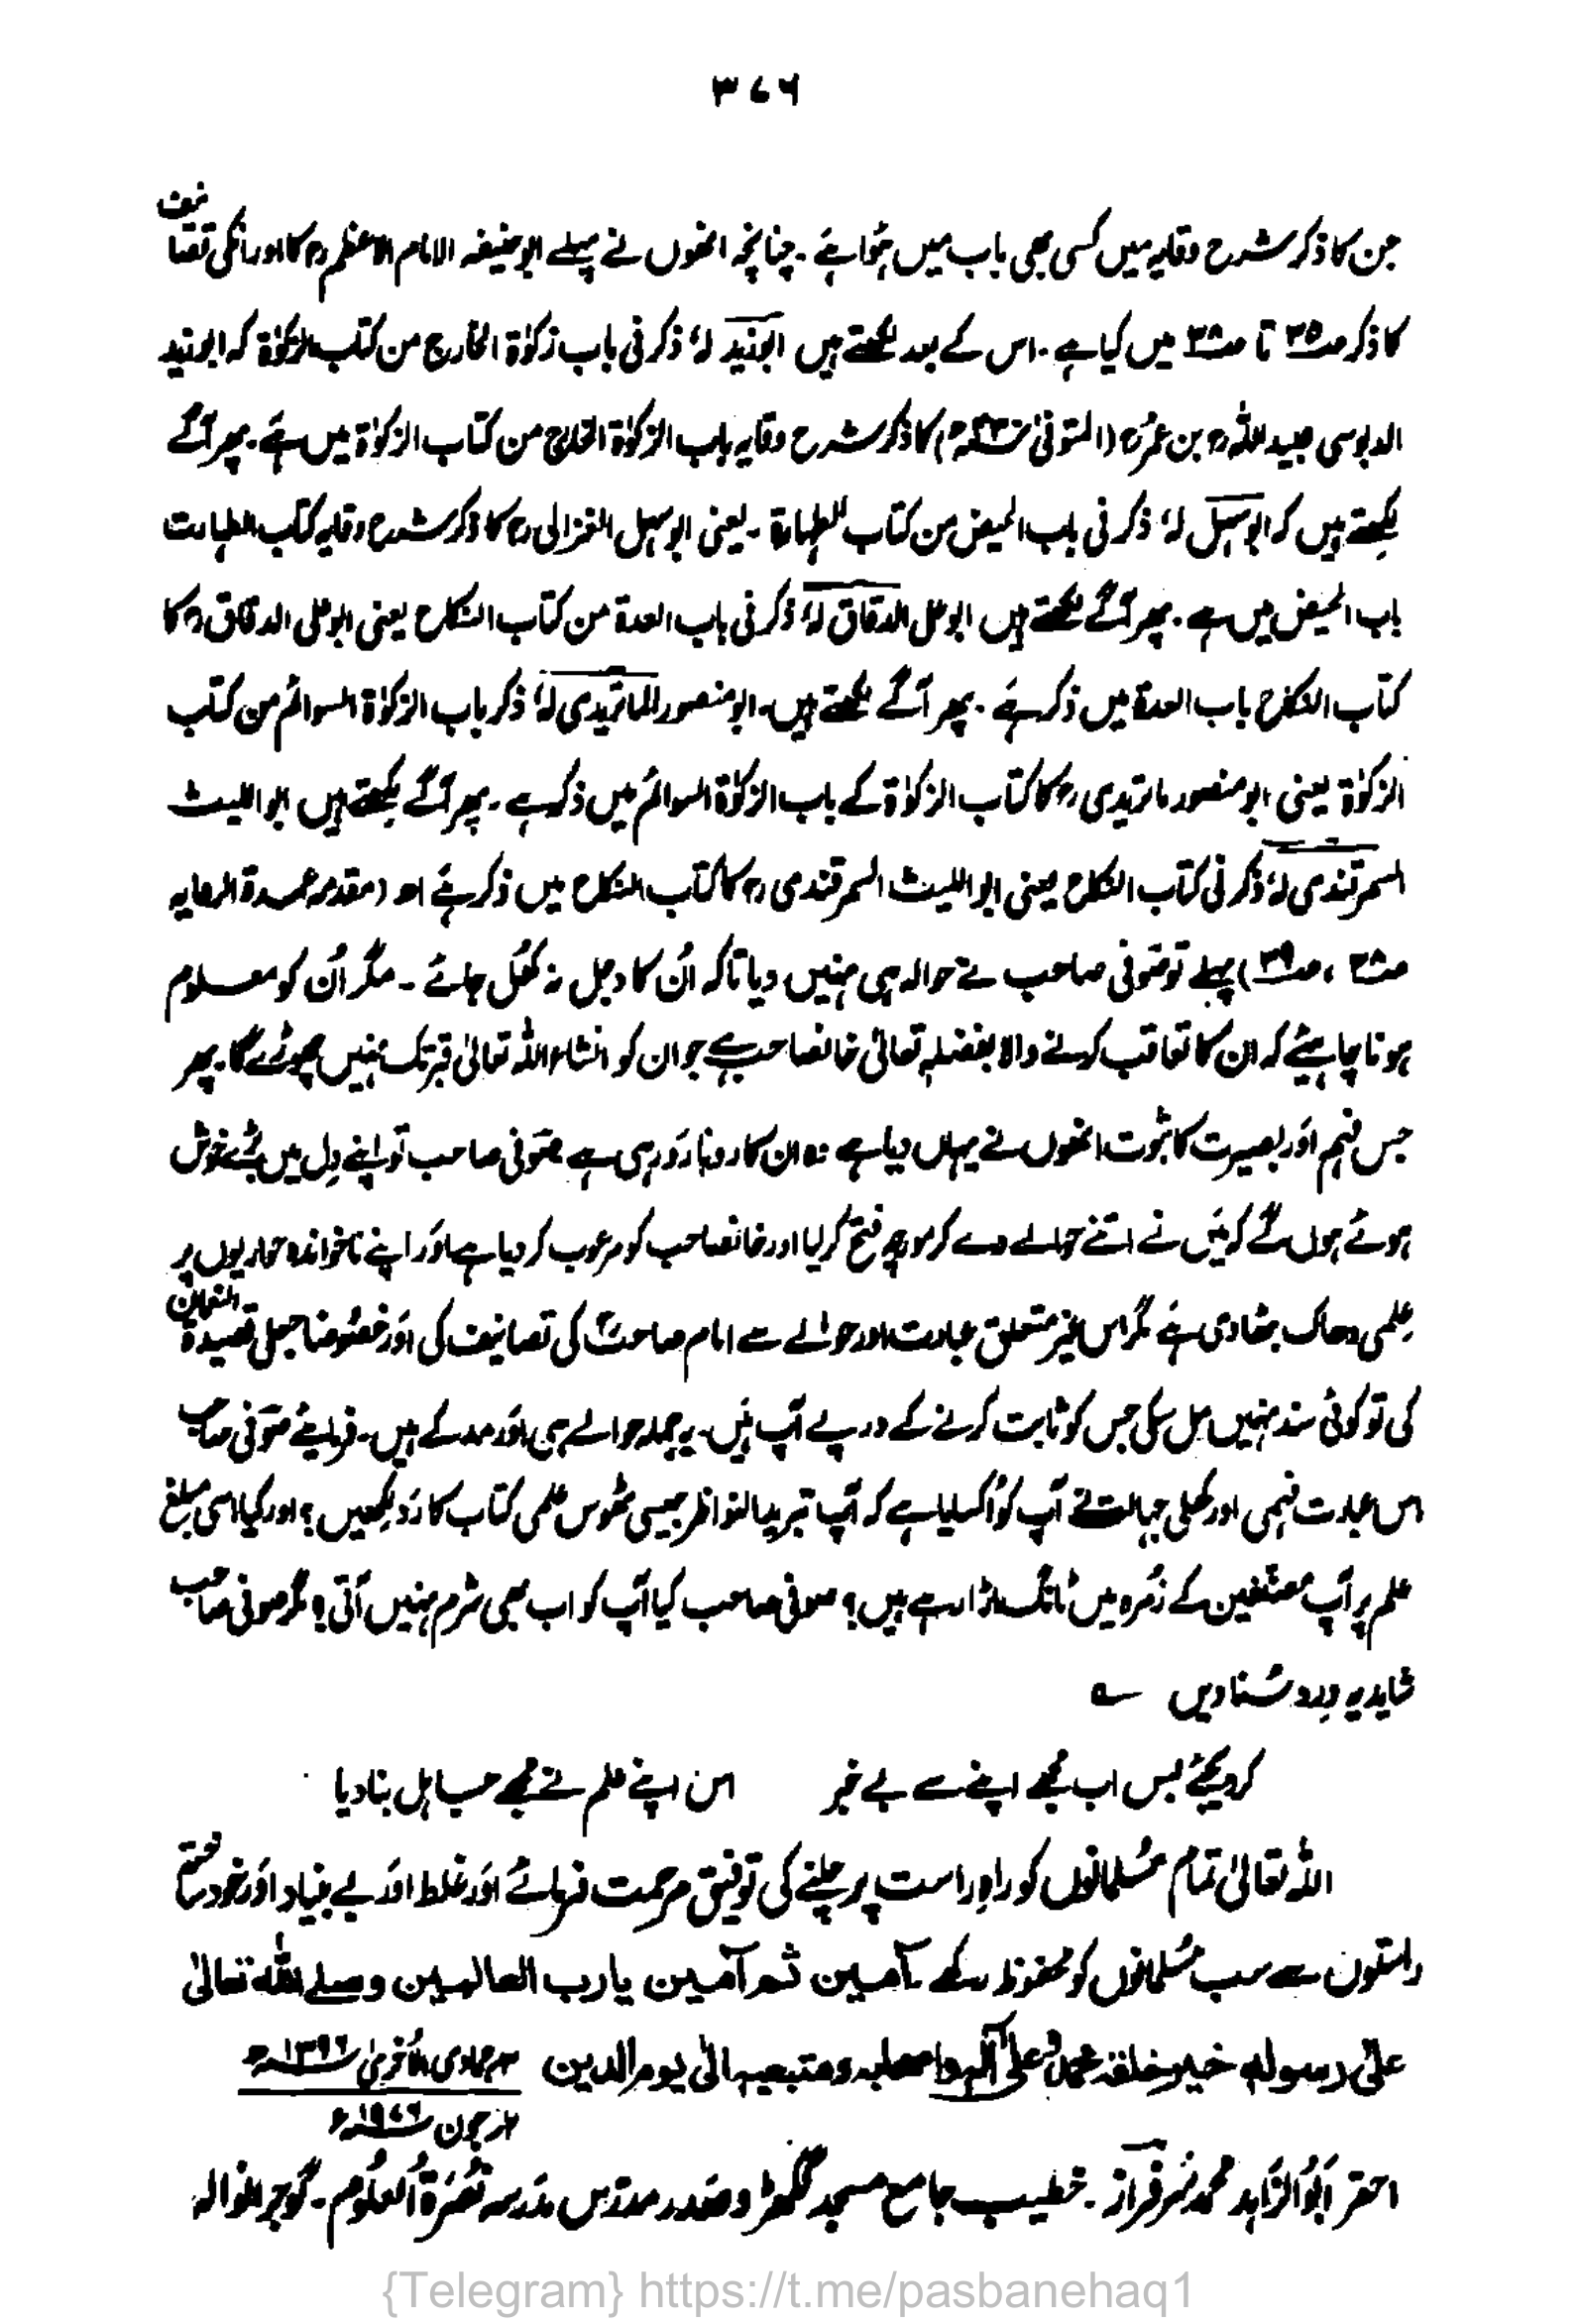 ۳۷۶
جن کا ذکر شرح وقایہ میں کسی بھی باب میں ہُوا ہے ۔ چنانچہ انھوں نے پہلے ابوحنیفہ الامام الاعظم رح کا اور انکی تصانیف
کا ذکر ص۳۵ تا ص۳۸ میں کیا ہے ۔ اس کے بعد لکھتے ہیں ابوزید لہٗ ذکر فی باب زکوٰۃ الخارج من کتاب الزکوٰۃ کہ ابوزید
الدبوسی عبید اللہ رح بن عمر رح (المتوفیٰ ۴۳۰ھ) کا ذکر شرح وقایہ باب الزکوٰۃ الخارج من کتاب الزکوٰۃ میں ہے ۔ پھر آگے
لکھتے ہیں کہ ابوسہل لہٗ ذکر فی باب الحیض من کتاب الطہارۃ ۔ یعنی ابوسہل الغزالی رح کا ذکر شرح وقایہ کتاب الطہارت
باب الحیض میں ہے ۔ پھر آگے لکھتے ہیں ابوعلی الدقاق لہٗ ذکر فی باب العدۃ من کتاب النکاح یعنی ابوعلی الدقاق رح کا
کتاب النکاح باب العدۃ میں ذکر ہے ۔ پھر آگے لکھتے ہیں ۔ ابومنصور الماتریدی لہٗ ذکر باب الزکوٰۃ السوائم من کتب
الزکوٰۃ یعنی ابومنصور ماتریدی رح کا کتاب الزکوٰۃ کے باب الزکوٰۃ السوائم میں ذکر ہے ۔ پھر آگے لکھتے ہیں ابو اللیث
السمرقندی لہٗ ذکر فی کتاب النکاح یعنی ابو اللیث السمرقندی رح کا کتاب النکاح میں ذکر ہے اھ (مقدمہ عمدۃ الرعایہ
ص۳۸، ص۳۹) پہلے تو صُوفی صاحب نے حوالہ ہی نہیں دیا تاکہ اُن کا دجل نہ کھُل جائے ۔ مگر اُن کو معلوم
ہونا چاہیئے کہ ان کا تعاقب کرنے والا بفضلہ تعالیٰ خانصاحب ہے جو ان کو انشاء اللہ تعالیٰ قبر تک نہیں چھوڑے گا ۔ پھر
جس فہم اور بصیرت کا ثبوت انھوں نے یہاں دیا ہے وہ ان کا رونا رَو رہی ہے صُوفی صاحب تو اپنے دِل میں بڑے خوش
ہوئے ہوں گے کہ مَیں نے اتنے حوالے دے کر مورچہ فتح کر لیا اور خانصاحب کو مرعوب کر دیا ہے اور اپنے ناخواندہ حواریوں پر
عِلمی دھاک بٹھا دی ہے مگر اس غیر متعلق عبارت اور حوالے سے امام صاحبؒ کی تصانیف کی اور خصُوصًا جعلی قصیدۃ النعمان
کی تو کوئی سند نہیں مل سکی جس کو ثابت کرنے کے درپے آپ ہیں ۔ یہ جملہ حوالے ہی اَور مد کے ہیں ۔ فرمایئے صوفی صاحب
اس عبارت فہمی اور کھلی جہالت نے آپ کو اُکسایا ہے کہ آپ تبرید النواظر جیسی ٹھوس علمی کتاب کا رَد لکھیں ؟ اور کیا اسی مبلغ
علم پر آپ مصنّفین کے زُمرہ میں ٹانگ اڑا رہے ہیں ؟ صوفی صاحب کیا آپ کو اب بھی شرم نہیں آتی ؟ مگر صوفی صاحب
شاید یہ وِرد سُنا دیں ؎
کر دیجئے بس اب مجھے اپنے سے بے خبر اس اپنے علم نے مجھے جاہل بنا دیا
اللہ تعالیٰ تمام مُسلمانوں کو راہِ راست پر چلنے کی توفیق مرحمت فرمائے اور غلط اور بے بنیاد اور خود ساختہ
راستوں سے سب مُسلمانوں کو محفوظ رکھے ۔ آمین ثم آمین یا رب العالمین وصلے اللہ تعالیٰ
علیٰ رسولہ خیر خلقہ محمد وعلیٰ آلہ واصحابہ ومتبعیہ الیٰ یوم الدین جمادی الاُخریٰ ۱۳۹۶ھ
جون ۱۹۷۶ء
احقر ابُوالزّاہد محمد سرفراز ۔ خطیب جامع مسجد گکھڑ و صَدر مدرّس مدرسہ نصُرَۃُ العلُوم ۔ گوجرانوالہ
{Telegram} https://t.me/pasbanehaq1